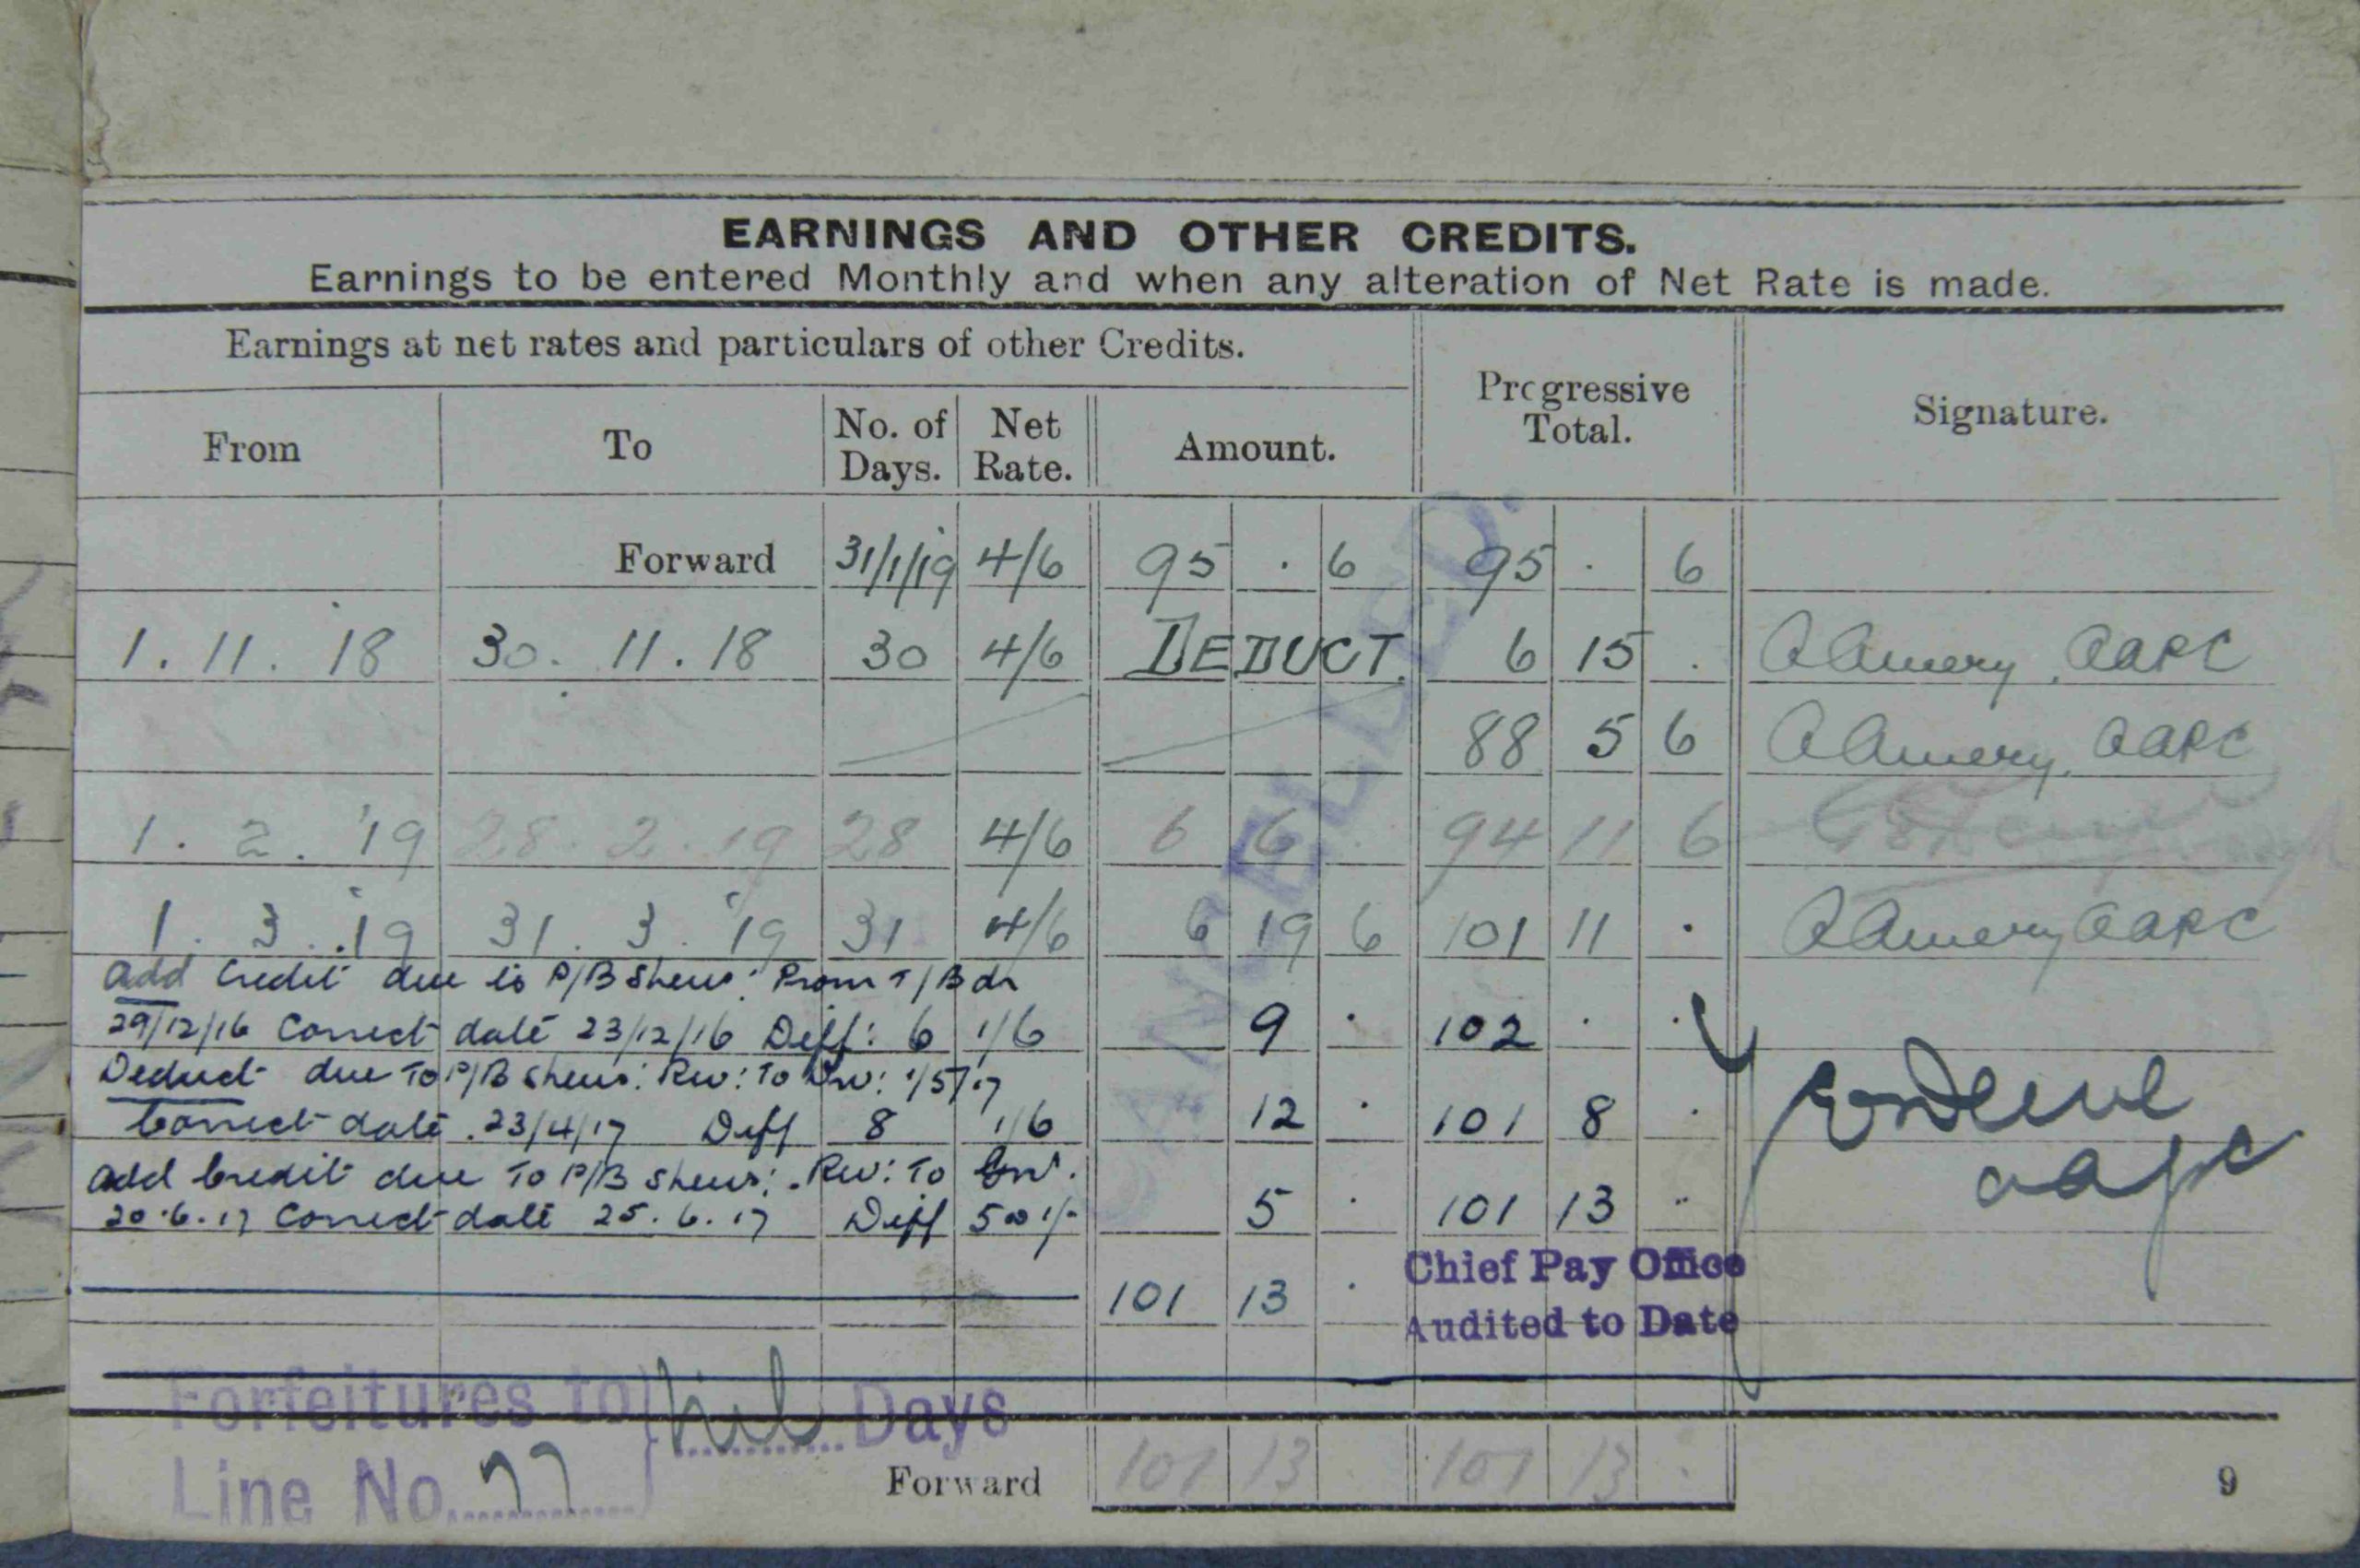 EARNINGS AND OTHER CREDITS.
Earnings to be entered Monthly and when any alteration of Net Rate is made.
Earnings at net rates and particulars of other Credits.
Progressive Total.
Signature.
From To No. of Days. Net Rate. Amount.
Forward 31/1/19 4/6 95 . 6 95 . 6
1. 11. 18 30. 11. 18 30 4/6 DEDUCT. 6 15 . A Amery, AAPC
88 5 6 A Amery, AAPC
1. 2. '19 28. 2. 19 28 4/6 6 6 . 94 11 6
1. 3. '19 31. 3. '19 31 4/6 6 19 6 101 11 . A Amery AAPC
Add Credit due to P/B shews: Prom T/Bdr
29/12/16 Correct date 23/12/16 Diff: 6 1/6 9 . 102 . .
Deduct due To P/B shews: Rev: To Dvr: 1/5/17
Correct date 23/4/17 Diff 8 1/6 12 . 101 8 .
Add Credit due To P/B shews: Rev: To Gnr.
20.6.17 Correct date 25.6.17 Diff 5 @ 1/- 5 . 101 13 ..
aapc
101 13 .
Chief Pay Office
Audited to Date
CANCELLED.
Forfeitures to Nil Days
Line No. 77
Forward 101 13 . 101 13 .
9